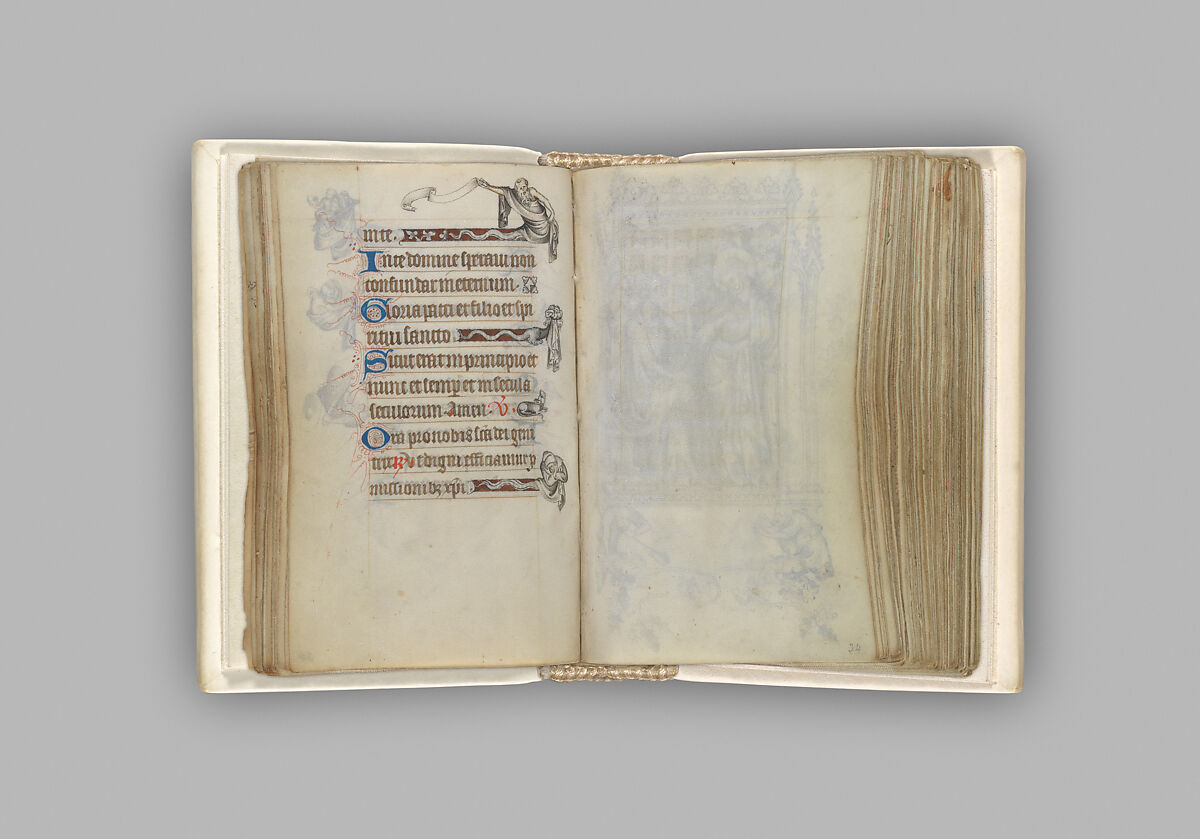 in te.
In te domine speraui non
confundar in eternum.
Gloria patri et filio et spi
ritui sancto
Sicut erat in principio et
nunc et semp et in secula
seculorum Amen. V.
Ora pro nobis sca dei geni
trix R Vt digni efficiamur p
missionibz xpi
34